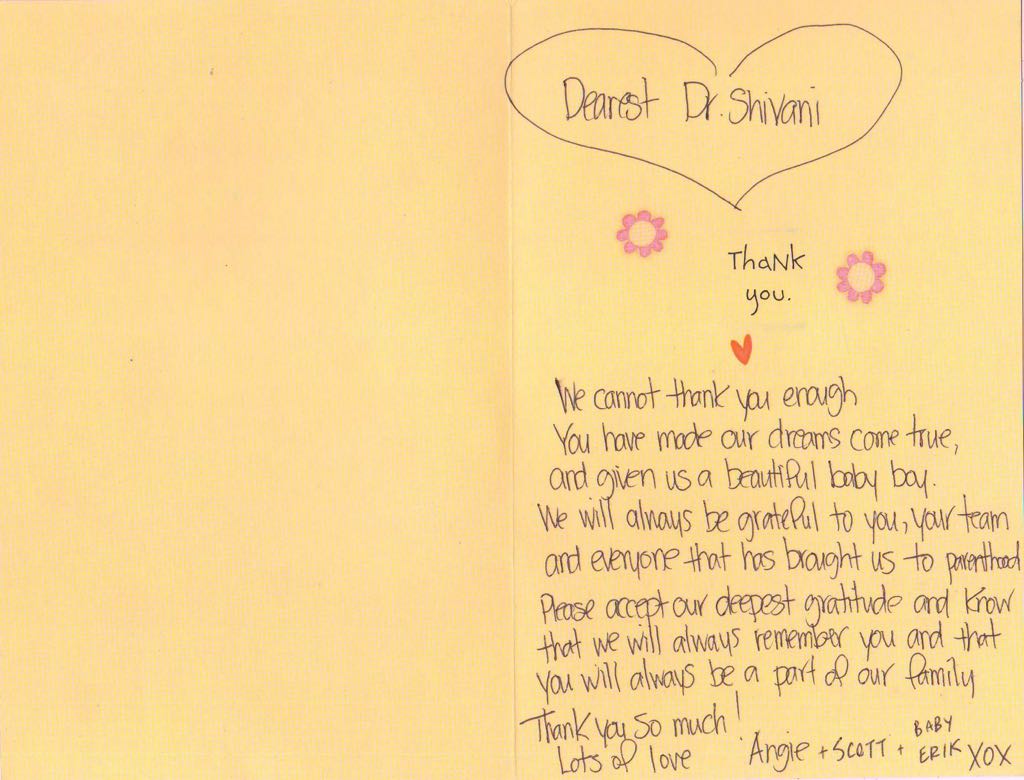 Dearest Dr. Shivani
Thank
you.
We cannot thank you enough
You have made our dreams come true,
and given us a beautiful baby boy.
We will always be grateful to you, your team
and everyone that has brought us to parenthood
Please accept our deepest gratitude and know
that we will always remember you and that
you will always be a part of our family
Thank you so much!
Lots of love Angie + SCOTT + BABY ERIK XOX